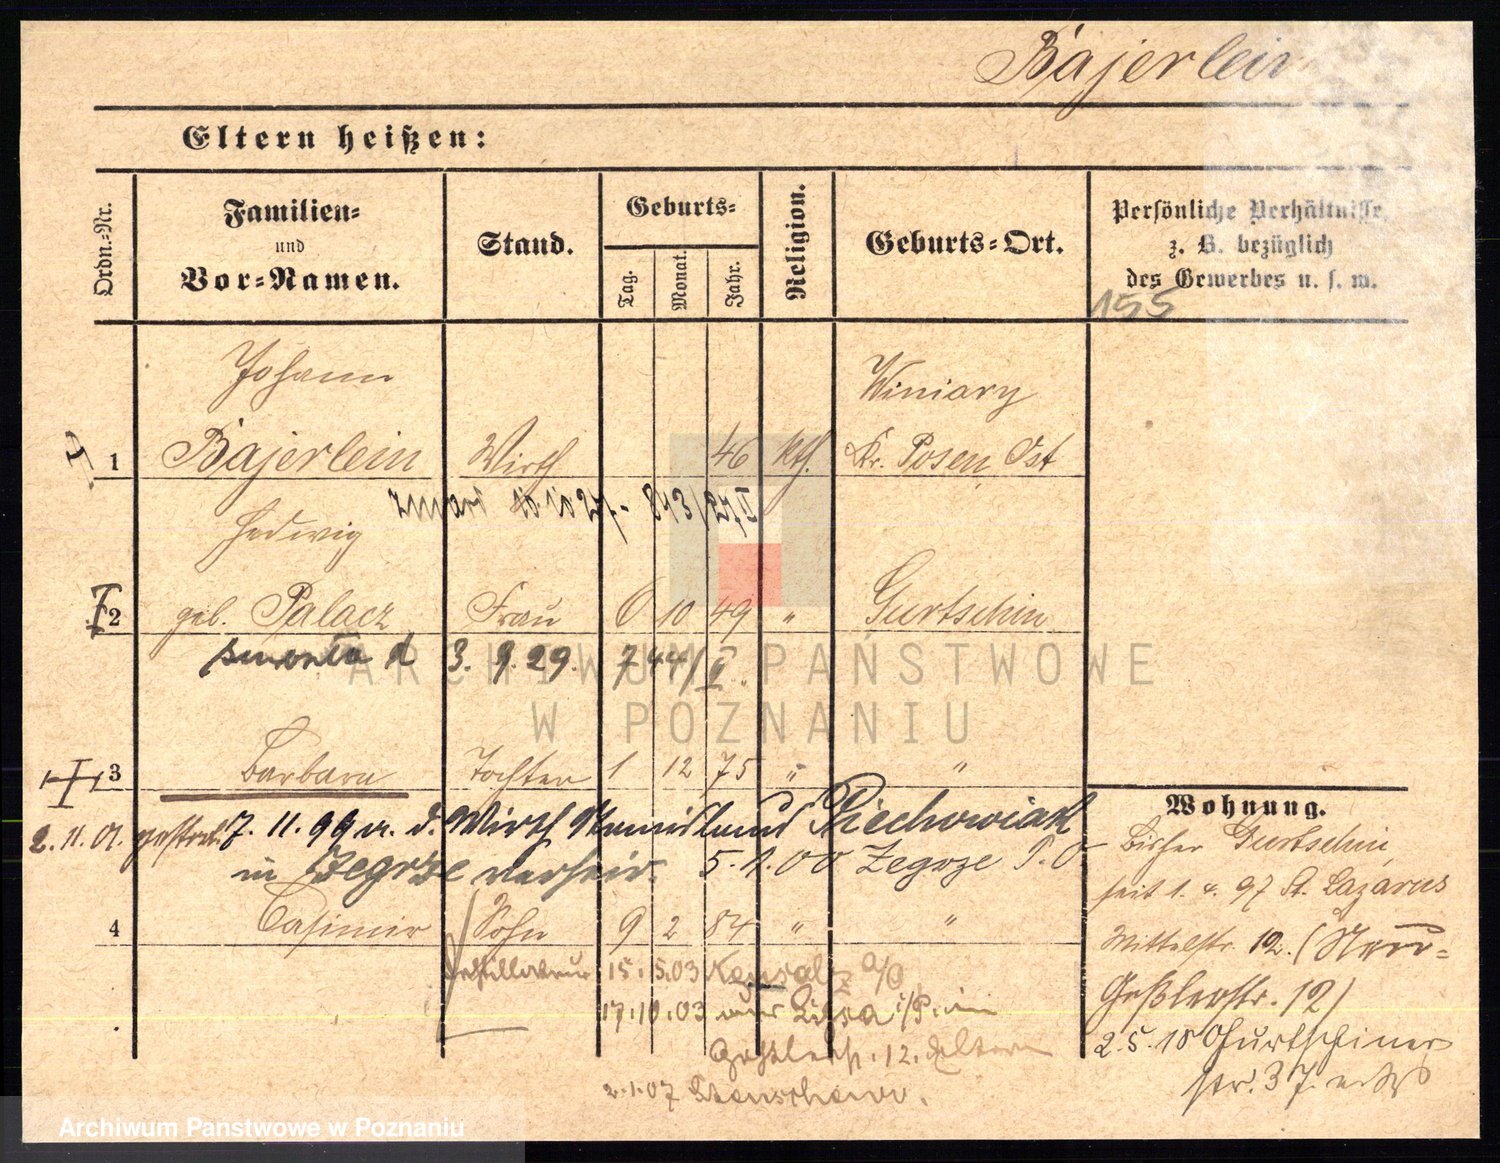 Bajerlein
Eltern heißen:
Ordn.-Nr.
Familien-
und
Vor-Namen.
Stand.
Geburts-
Tag.
Monat.
Jahr.
Religion.
Geburts-Ort.
Persönliche Verhältnisse,
z. B. bezüglich
des Gewerbes u. s. w.
155
Johann
Winiary
1 Bajerlein Wirth 46 kth. Kr. Posen Ost
zmarł
Hedwig
2 geb. Palacz Frau 6 10 49 " Gurtschin
zmarła d 3. 9. 29. 744/II
3 Barbara Tochter 1 12 75 " "
2.11.01. gestrich. 7. 11. 99 a. d. Wirth Stanislaus Piechowiak
in Zegrze verheir. 5. 1. 00 Zegrze P. O
4 Casimir Sohn 9 2 84 " "
Destillateur 15. 5. 03
17. 10. 03 aus Lissa i/P. in
Geßlerstr. 12. Eltern
2. 1. 07
Wohnung.
Bisher Gurtschin,
seit 1. 4. 97 St. Lazarus
Mittelstr. 12. (Neue-
Geßlerstr. 12)
2. 5. 18 Gurtschiner
str. 37.
ARCHIWUM PAŃSTWOWE
W POZNANIU
Archiwum Państwowe w Poznaniu